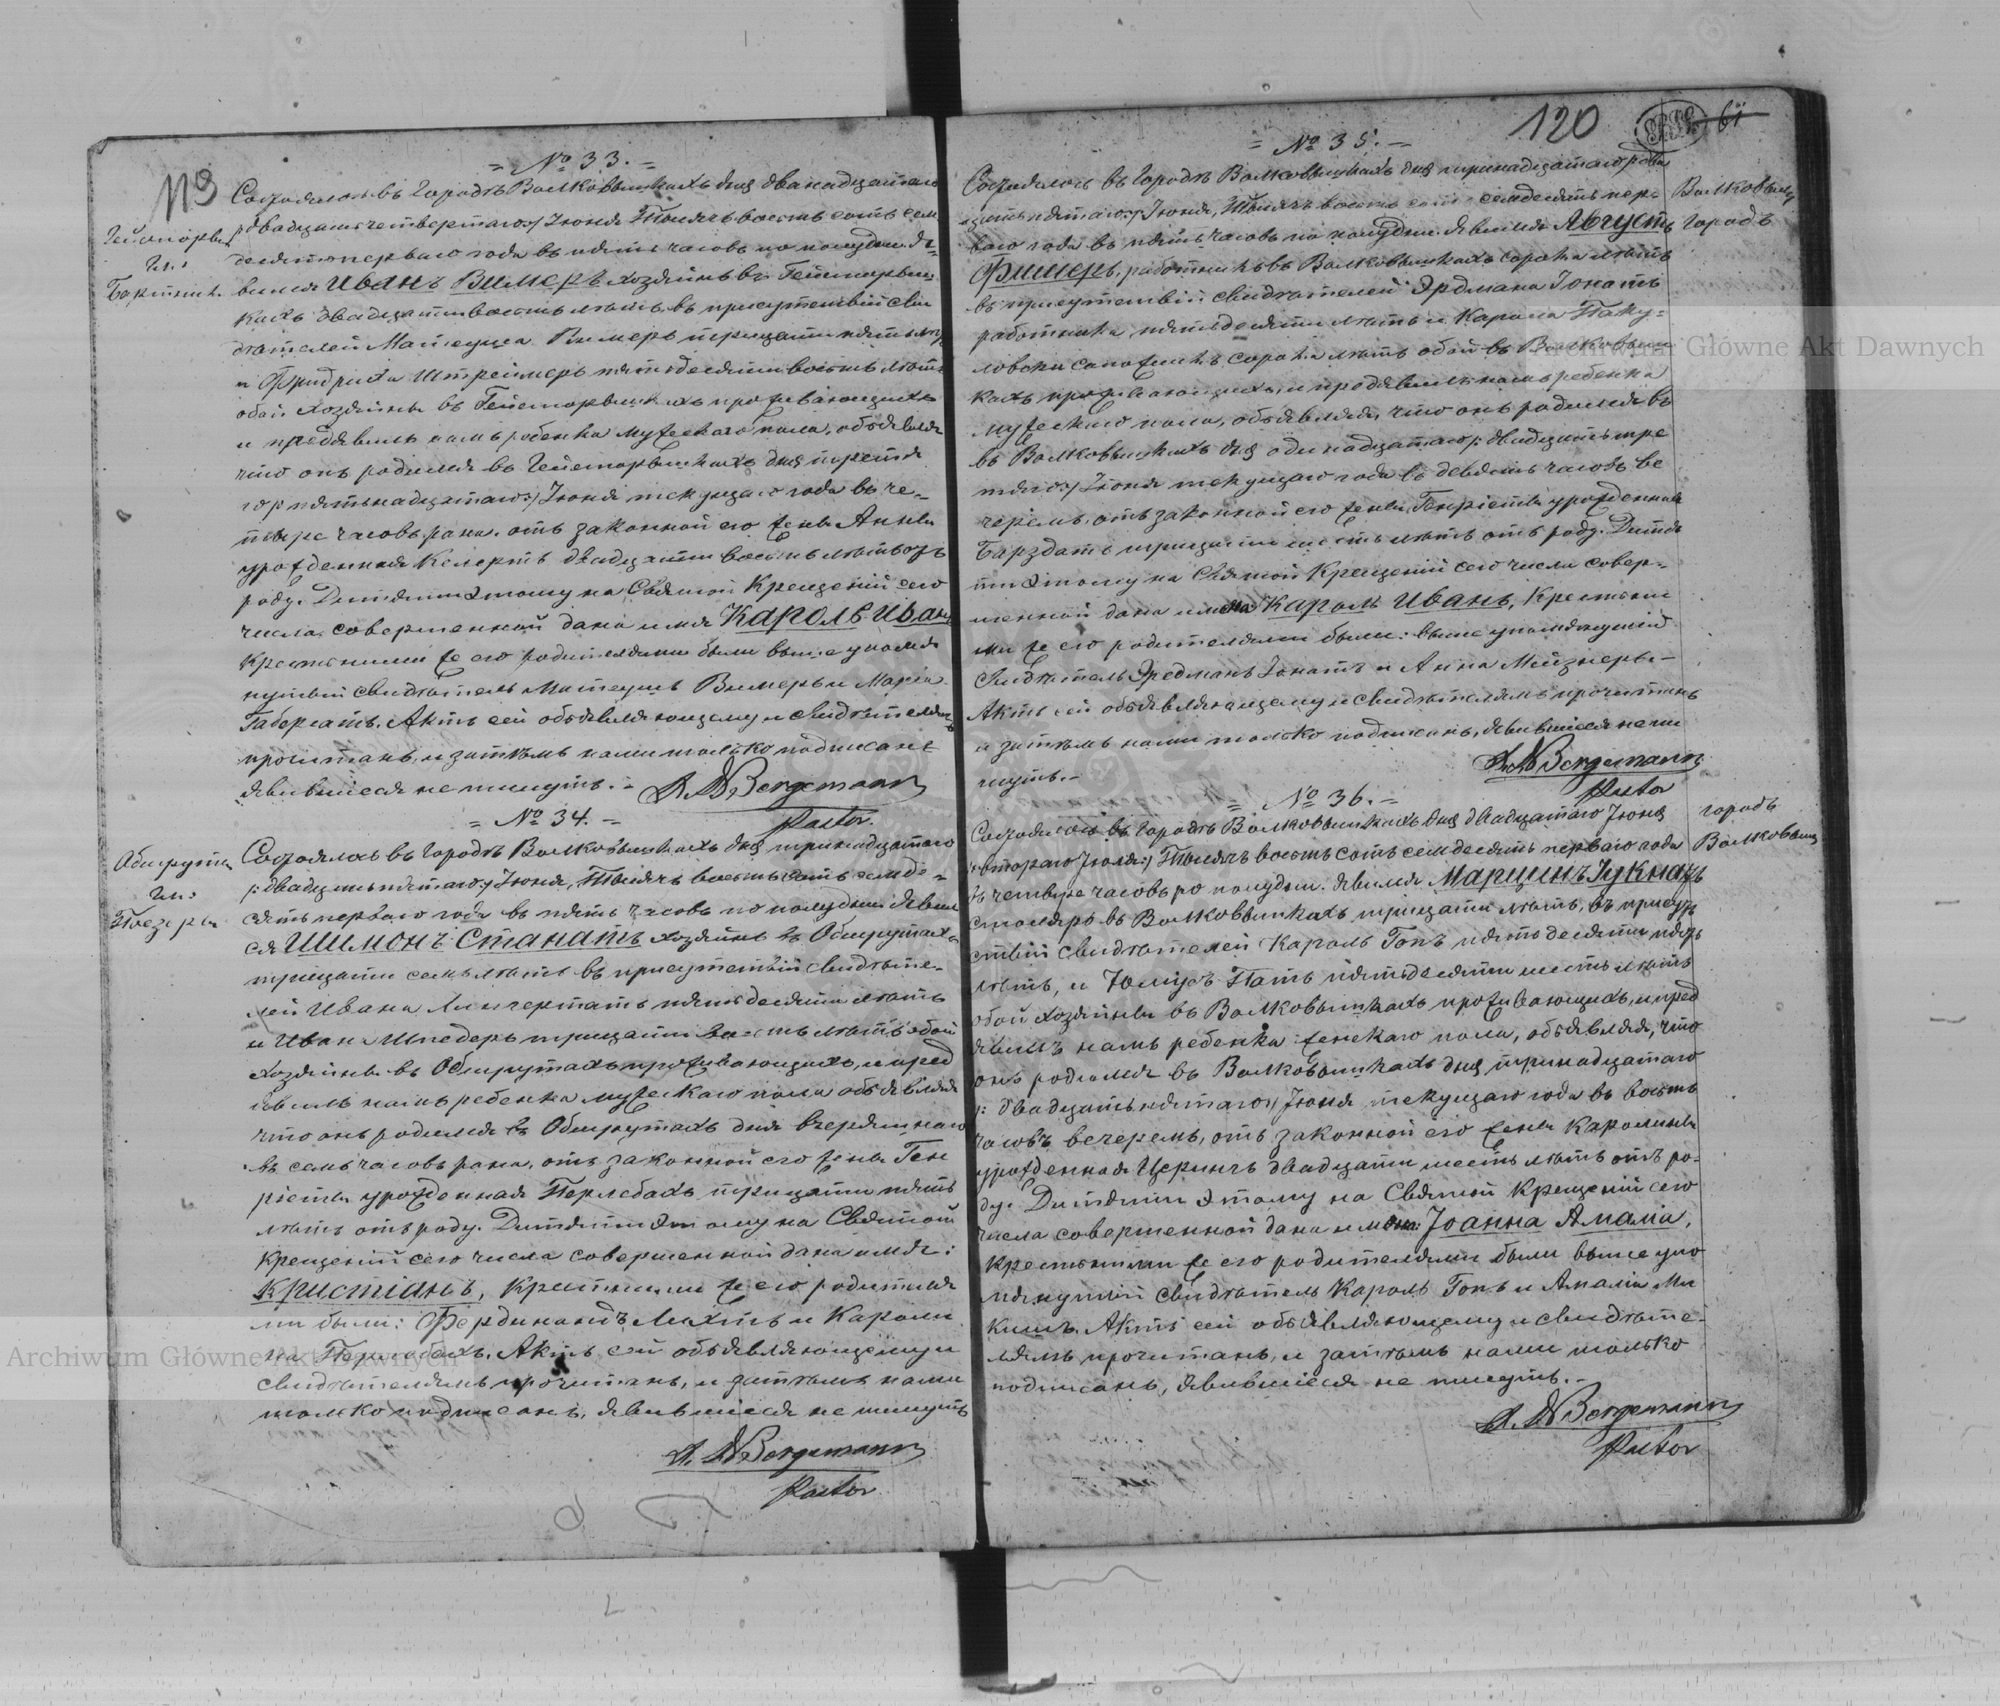 119
= № 33. =
Состоялось въ городѣ Волковышкахъ дня двѣнадцатаго
/двадцать четвертаго/ Іюня Тысяча восемь сотъ семь
десять перваго года въ пять часовъ по полудни. Я=
вился Иванъ Вимеръ хозяинъ въ
кахъ двадцати восемь лѣтъ, въ присутствіи сви
дѣтелей Матеуша Вимеръ тридцати пять лѣтъ
и Фридриха Штреймеръ пятьдесяти восемь лѣтъ
обои хозяины въ проживающихъ
и предъявилъ намъ ребенка мужескаго пола, объявляя
что онъ родился въ дня третья
го /: пятьнадцатаго :/ Іюня текущаго года въ че=
тыре часовъ рана, отъ законной его жены Анны
урожденная Келертъ двадцати восемь лѣтъ отъ
роду. Дитяти этому на Святой Крещеній сего
числа совершенной дано имя Кароль Иванъ
Крестными же его родителями были выше упомя
нутый свидѣтель Матеушъ Вимеръ и Марія
Габерсатъ. Актъ сей объявляющему и свидѣтелямъ
прочитанъ, и затѣмъ нами только подписанъ
явившіеся не пишутъ. – A. W. Bergemann
Pastor.
= № 34. =
Обшруты
Гм:
Состоялось въ городѣ Волковышкахъ дня тринадцатаго
/: двадцать пятаго :/ Іюня, Тысяча восемь сотъ семьде=
сять перваго года въ пять часовъ по полудни. Явил
ся Шимонъ Станатъ хозяинъ въ Обшрутахъ
тридцати семь лѣтъ въ присутствіи свидѣте=
лей Ивана пятьдесяти лѣтъ
и Ивана Шпедеръ тридцати восемь лѣтъ обои
хозяины въ Обшрутахъ проживающихъ, и пред
явилъ намъ ребенка мужескаго пола объявляя
что онъ родился въ Обшрутахъ дня вчерашнаго
въ семь часовъ рана, отъ законной его жены Ген
ріеты урожденная Перлебахъ тридцати пять
лѣтъ отъ роду. Дитяти этому на Святой
Крещеній сего числа совершенной дано имя:
Кристіанъ, Крестными же его родителя
ми были: Фердинандъ Лихтъ и Кароли
на Перлебахъ. Актъ сей объявляющему и
свидѣтелямъ прочитанъ, и затѣмъ нами
только подписанъ, явившіеся не пишутъ
A. W. Bergemann
Pastor
120
61
= № 35. =
Волковышки
городъ
Состоялось въ городѣ Волковышкахъ дня тринадцатаго /два
дцать пятаго:/ Іюня, Тысяча восемь сотъ семдесять пер=
ваго года въ пять часовъ по полудни. Явился Августъ
Фишеръ, работникъ въ Волковышкахъ сорока лѣтъ
въ присутствіи свидѣтелей Эрдмана Іонатъ
работника пятьдесяти лѣтъ и Карола Паку=
ловски сапожникъ сорока лѣтъ обои въ Волковыш
кахъ проживающихъ, и предъявилъ намъ ребенка
мужескаго пола, объявляя, что онъ родился въ
въ Волковышкахъ дня одинадцатаго /: двадцать тре
тяго :/ Іюня текущаго года въ девять часовъ ве
черемъ, отъ законной его жены Генріеты урожденная
Барздатъ тридцати шесть лѣтъ отъ роду. Дитя
ти этому на Святой Крещеній сего числа совер=
шенной дано имена Кароль Иванъ, Крестны
ми же его родителями были: выше упомянутій
Свидѣтель Эрдманъ Іонатъ и Анна Мейзнеръ –
Актъ сей объявляющему и свидѣтелямъ прочитанъ
и затѣмъ нами только подписанъ, явившіеся не пи
шутъ. –
A. W. Bergemann
Pastor
= № 36. =
городъ
Волковыш
Состоялось въ городѣ Волковышкахъ дня двадцатаго Іюня
/: втораго Іюля :/ Тысяча восемь сотъ семдесять перваго года
въ четыре часовъ по полудни. Явился Марцинъ Гукнатъ
столяръ въ Волковышкахъ тридцати лѣтъ, въ присут
ствіи свидѣтелей Кароль Гопъ пятьдесяти пять
лѣтъ, и Юлиусъ Патъ пятьдесяти шесть лѣтъ
обои хозяины въ Волковышкахъ проживающихъ, и пред
явилъ намъ ребенка женскаго пола, объявляя, что
онъ родился въ Волковышкахъ дня тринадцатаго
/: двадцать пятаго :/ Іюня текущаго года въ восемь
часовъ вечеремъ, отъ законной его жены Каролины
урожденная двадцати шесть лѣтъ отъ ро=
ду. Дитяти этому на Святой Крещеній сего
числа совершенной дано имена: Іоанна Амалія,
Крестными же его родителями были выше упо
мянутій свидѣтель Кароль Гопъ и Амалія Ми
кишъ. Актъ сей объявляющему и свидѣте=
лямъ прочитанъ, и затѣмъ нами только
подписанъ, явившіеся не пишутъ. –
A. W. Bergemann
Pastor
Archiwum Główne Akt Dawnych
Archiwum Główne Akt Dawnych